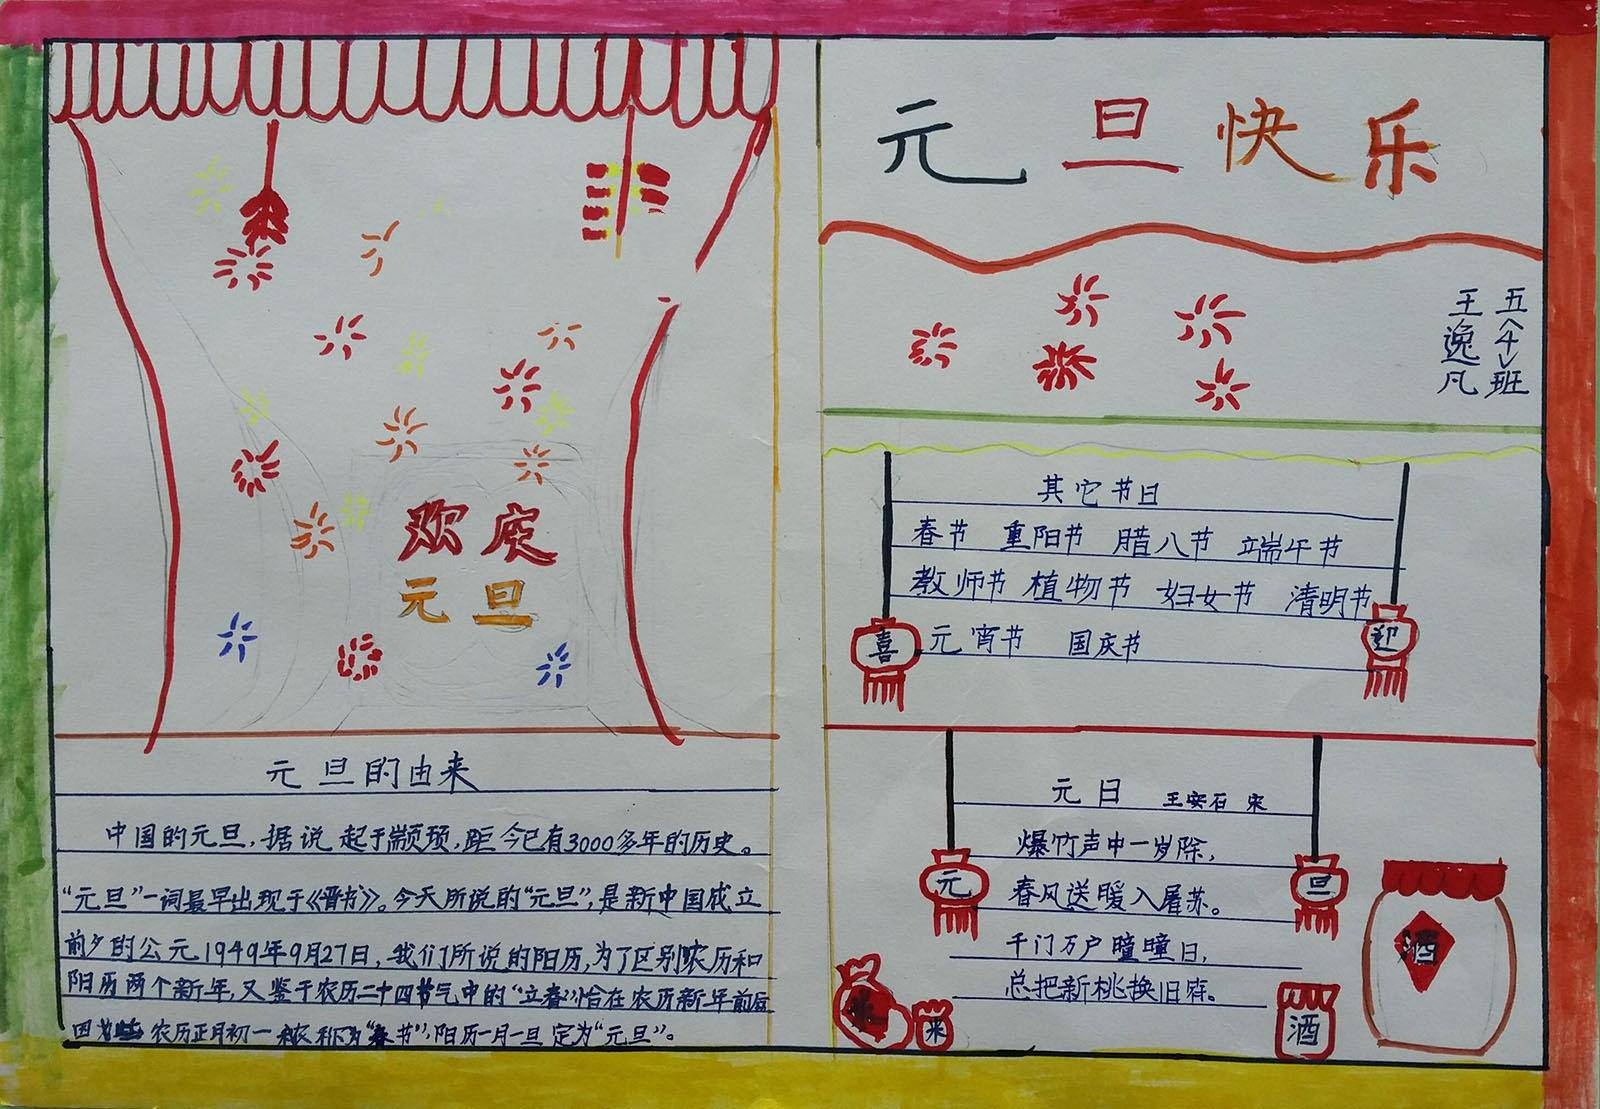 欢庆
元旦
元旦的由来
中国的元旦,据说起于颛顼,距今已有3000多年的历史。
“元旦”一词最早出现于《晋书》。今天所说的“元旦”,是新中国成立
前夕的公元1949年9月27日,我们所说的阳历,为了区别农历和
阳历两个新年,又鉴于农历二十四节气中的“立春”恰在农历新年前后
因 农历正月初一 称为“春节”,阳历一月一旦定为“元旦”。
元旦快乐
五<4>班
王逸凡
其它节日
春节 重阳节 腊八节 端午节
教师节 植物节 妇女节 清明节
元宵节 国庆节
喜
迎
元日 王安石 宋
爆竹声中一岁除,
春风送暖入屠苏。
千门万户曈曈日,
总把新桃换旧符。
元
旦
酒
米
酒